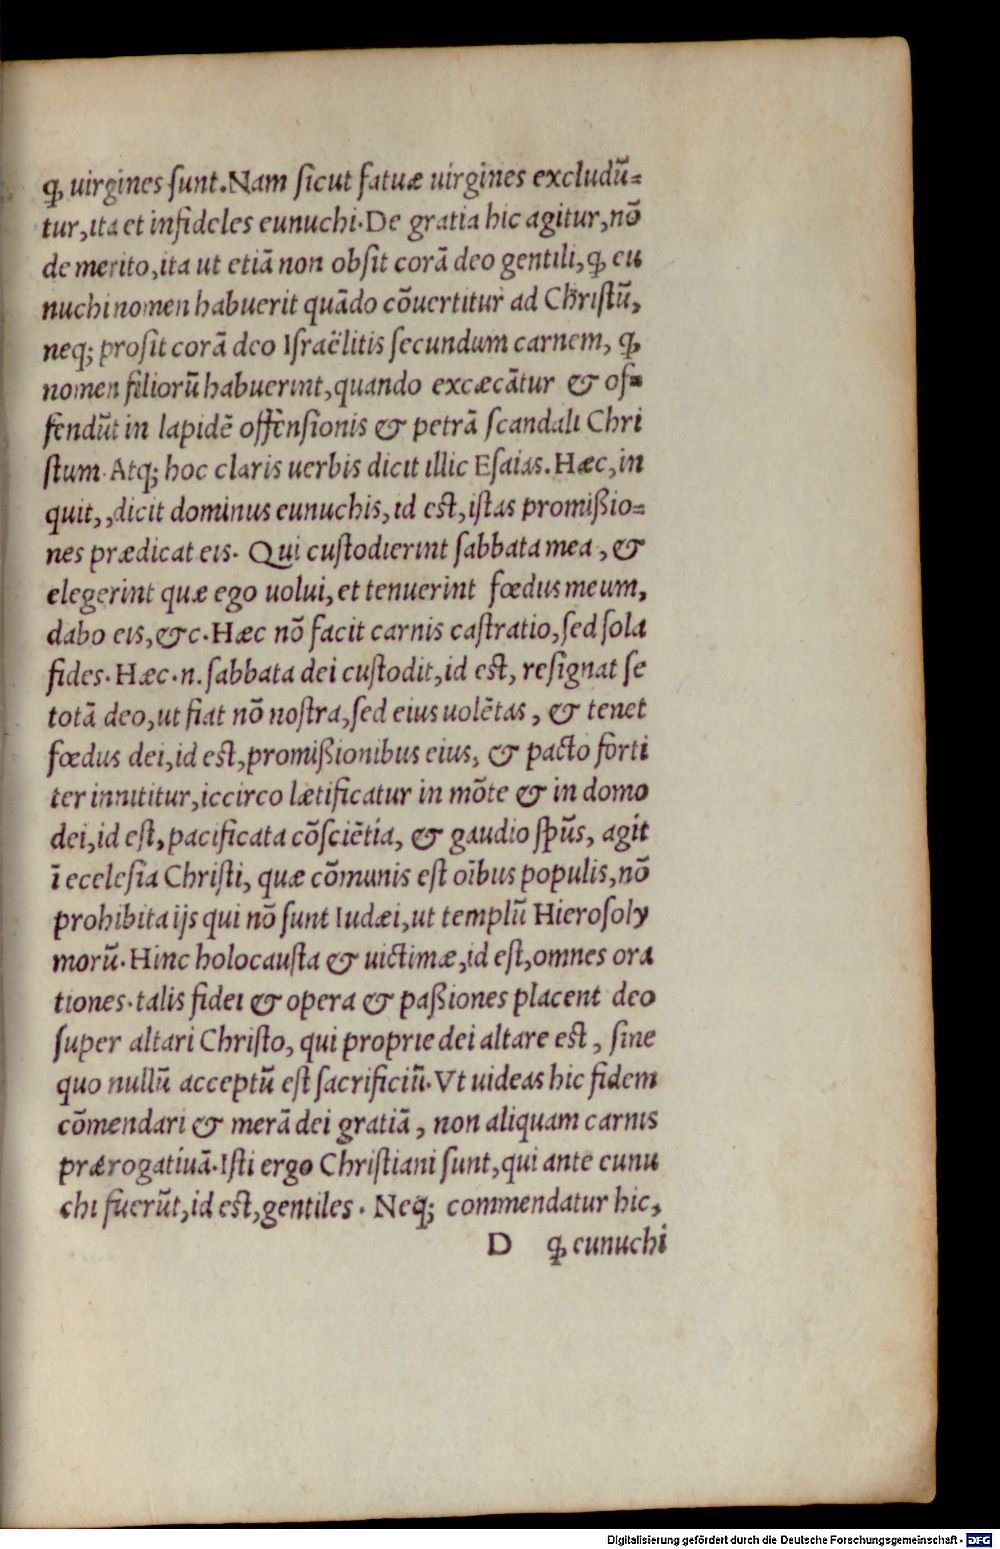 ꝙ uirgines ſunt. Nam ſicut fatuæ uirgines excludū⸗
tur, ita et infideles eunuchi. De gratia hic agitur, nō
de merito, ita ut etiā non obſit corā deo gentili, ꝙ eu
nuchi nomen habuerit quādo cōuertitur ad Chriſtū,
neq; proſit corā deo Iſraëlitis ſecundum carnem, ꝙ
nomen filiorū habuerint, quando excæcātur & of⸗
fendūt in lapidē offenſionis & petrā ſcandali Chri
ſtum. Atq; hoc claris uerbis dicit illic Eſaias. Hæc, in
quit,, dicit dominus eunuchis, id eſt, iſtas promißio⸗
nes prædicat eis. Qui cuſtodierint ſabbata mea, &
elegerint quæ ego uolui, et tenuerint fœdus meum,
dabo eis, &c. Hæc nō facit carnis caſtratio, ſed ſola
fides. Hæc.n. ſabbata dei cuſtodit, id eſt, reſignat ſe
totā deo, ut fiat nō noſtra, ſed eius uolētas, & tenet
fœdus dei, id eſt, promißionibus eius, & pacto forti
ter innititur, iccirco lætificatur in mōte & in domo
dei, id eſt, pacificata cōſciētia, & gaudio ſpūs, agit
ī eccleſia Chriſti, quæ cōmunis eſt oībus populis, nō
prohibita ijs qui nō ſunt Iudæi, ut templū Hieroſoly
morū. Hinc holocauſta & uictimæ, id eſt, omnes ora
tiones. talis fidei & opera & paßiones placent deo
ſuper altari Chriſto, qui proprie dei altare eſt, ſine
quo nullū acceptū eſt ſacrificiū. Vt uideas hic fidem
cōmendari & merā dei gratiā, non aliquam carnis
prærogatiuā. Iſti ergo Chriſtiani ſunt, qui ante eunu
chi fuerūt, id eſt, gentiles. Neq; commendatur hic,
D ꝙ eunuchi
Digitalisierung gefördert durch die Deutsche Forschungsgemeinschaft - DFG